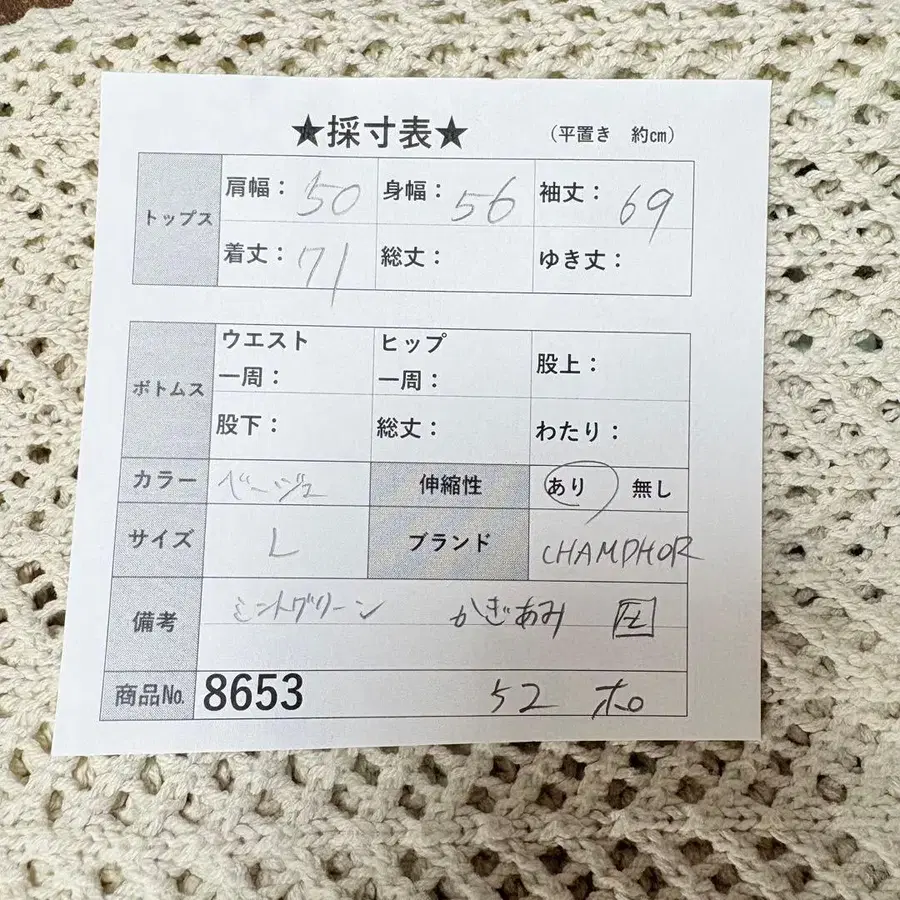 ★採寸表★ (平置き 約cm)
トップス 肩幅: 50 身幅: 56 袖丈: 69
着丈: 71 総丈: ゆき丈:
ボトムス ウエスト一周: ヒップ一周: 股上:
股下: 総丈: わたり:
カラー ベージュ 伸縮性 あり 無し
サイズ L ブランド CHAMPHOR
備考 ミントグリーン かぎあみ
商品No. 8653 52 ホ